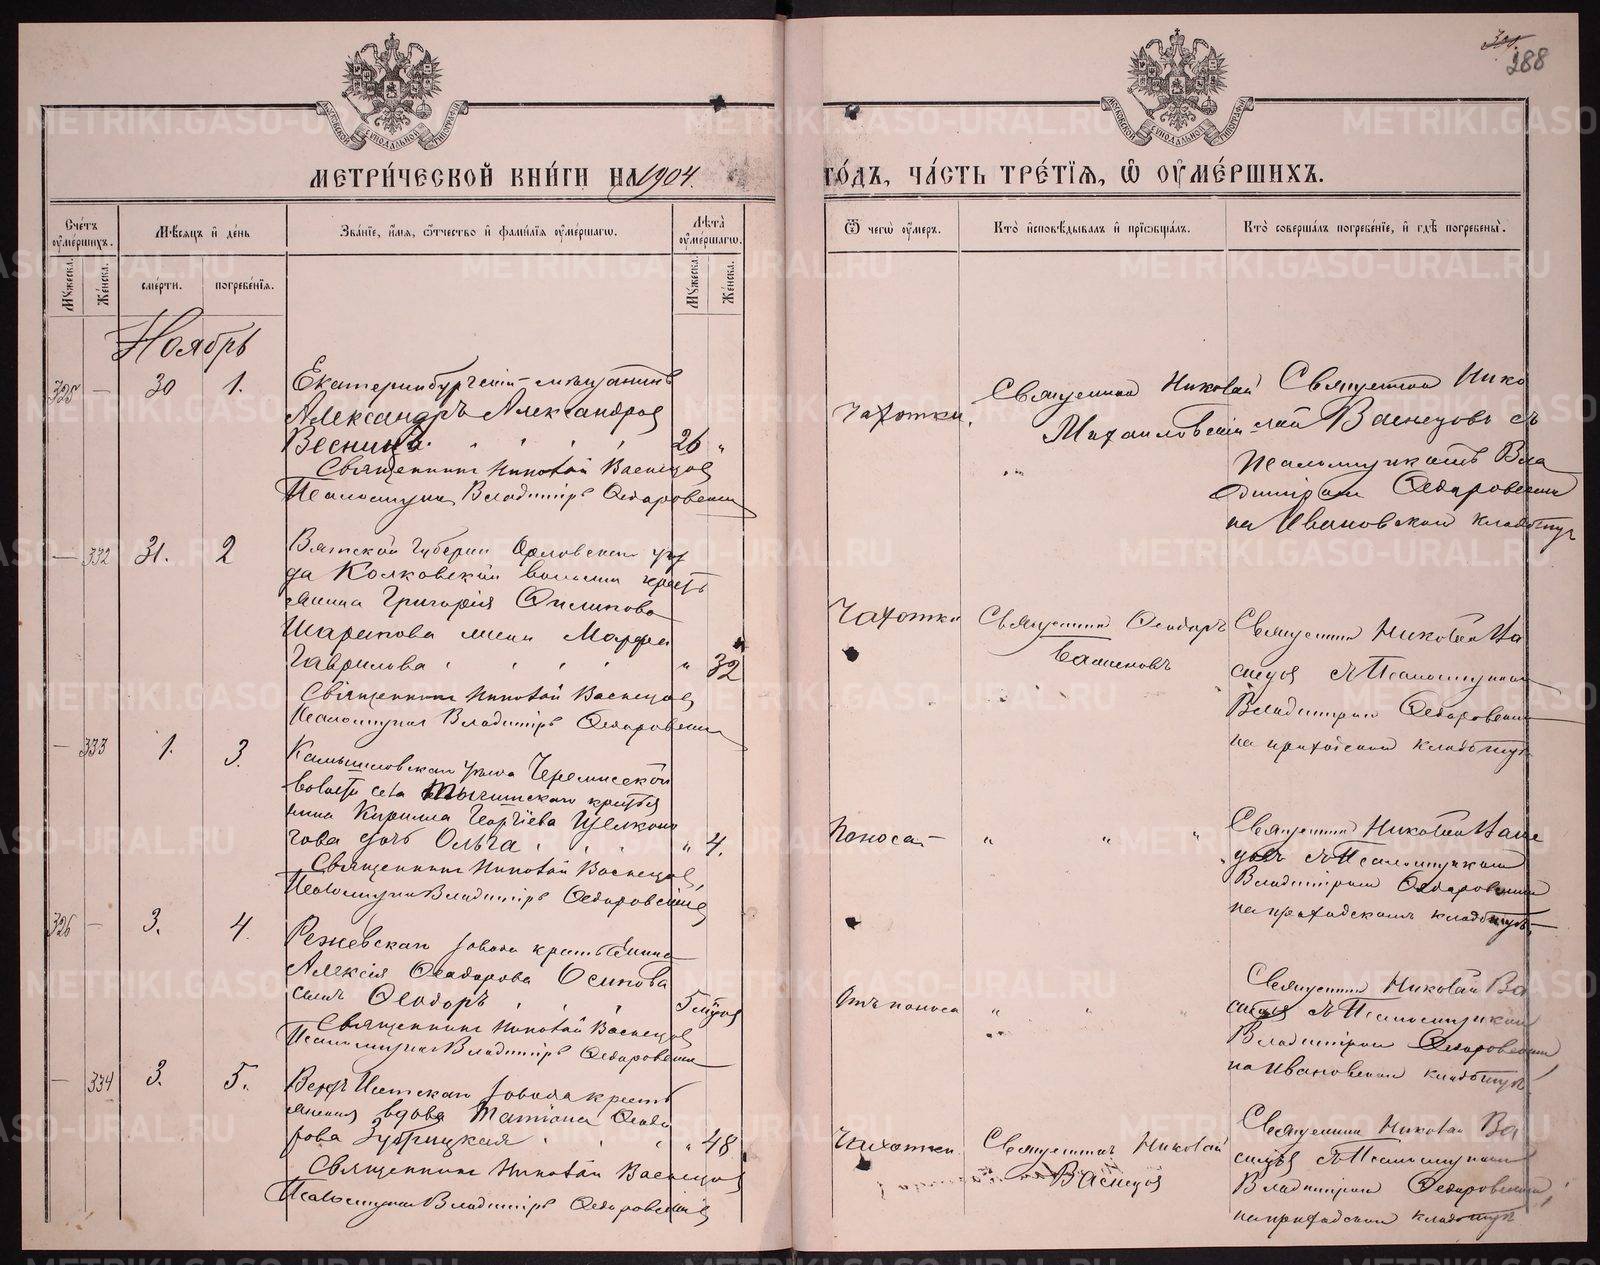 304.
288
МОСКОВСКОЙ СИНОДАЛЬНОЙ ТИПОГРАФІИ
МОСКОВСКОЙ СИНОДАЛЬНОЙ ТИПОГРАФІИ
МЕТРИ́ЧЕСКОЙ КНИ́ГИ НА 1904.
ГО́ДЪ, ЧА́СТЬ ТРЕ́ТІЯ, Ѡ ОУМЕ́РШИХЪ.
Сче́тъ оуме́ршихъ.
Мꙋжеска.
Же́нска.
Мѣсяцъ и де́нь
сме́рти.
погребе́нія.
Зва́ніе, и́мя, о́тчество и фами́лія оуме́ршагѡ.
Лѣта̀ оуме́ршагѡ.
Мꙋжеска.
Же́нска.
Ѿ чегѡ̀ оу́меръ.
Кто̀ исповѣ́дывалъ и прїѡбща́лъ.
Кто̀ соверша́лъ погребе́ніе, и гдѣ̀ погребены̀.
Ноябрь
325 — 30 1.
Екатеринбургскій мѣщанинъ
Александръ Александровъ
Веснинъ. 26 "
Священникъ Николай Васнецовъ
Псаломщикъ Владиміръ Ѳедоровскій
Чахотки.
Священникъ Николай
Михайловскій
Священникъ Нико
лай Васнецовъ съ
псаломщикомъ Вла
диміромъ Ѳедоровскимъ
на Ивановскомъ кладбищѣ
— 332 31. 2
Вятской губерніи Орловскаго уѣз
да Колковской волости кресть
янина Григорія Филиппова
Шарапова жена Марфа
Гаврилова " 32
Священникъ Николай Васнецовъ
Псаломщикъ Владиміръ Ѳедоровскій
Чахотки
Священникъ Ѳеодоръ
Священникъ Николай Ва
снецовъ съ Псаломщикомъ
Владиміромъ Ѳедоровскимъ
на приходскомъ кладбищѣ
— 333 1. 3.
Камышловскаго уѣзда Черемисской
волости села крестья
нина Кирилла Георгіева Щелкону
гова дочь Ольга " 4.
Священникъ Николай Васнецовъ
Псаломщикъ Владиміръ Ѳедоровскій
Поноса " " "
Священникъ Николай Васне
цовъ съ Псаломщикомъ
Владиміромъ Ѳедоровскимъ
на приходскомъ кладбищѣ
326 — 3. 4.
Режевскаго завода крестьянина
Алексія Ѳеодорова Осипова
сынъ Ѳеодоръ 5 мѣсяц
Священникъ Николай Васнецовъ
Псаломщикъ Владиміръ Ѳедоровскій
Отъ поноса " " "
Священникъ Николай Ва
снецовъ съ Псаломщикомъ
Владиміромъ Ѳедоровскимъ
на Ивановскомъ кладбищѣ
— 334 3. 5.
Верхъ Исетскаго завода кресть
янская вдова Татіана Ѳеодо
рова Зубрицкая " 48
Священникъ Николай Васнецовъ
Псаломщикъ Владиміръ Ѳедоровскій
Чахотки
Священникъ Николай
Васнецовъ
Священникъ Николай Ва
снецовъ съ Псаломщикомъ
Владиміромъ Ѳедоровскимъ
на приходскомъ кладбищѣ
METRIKI.GASO-URAL.RU